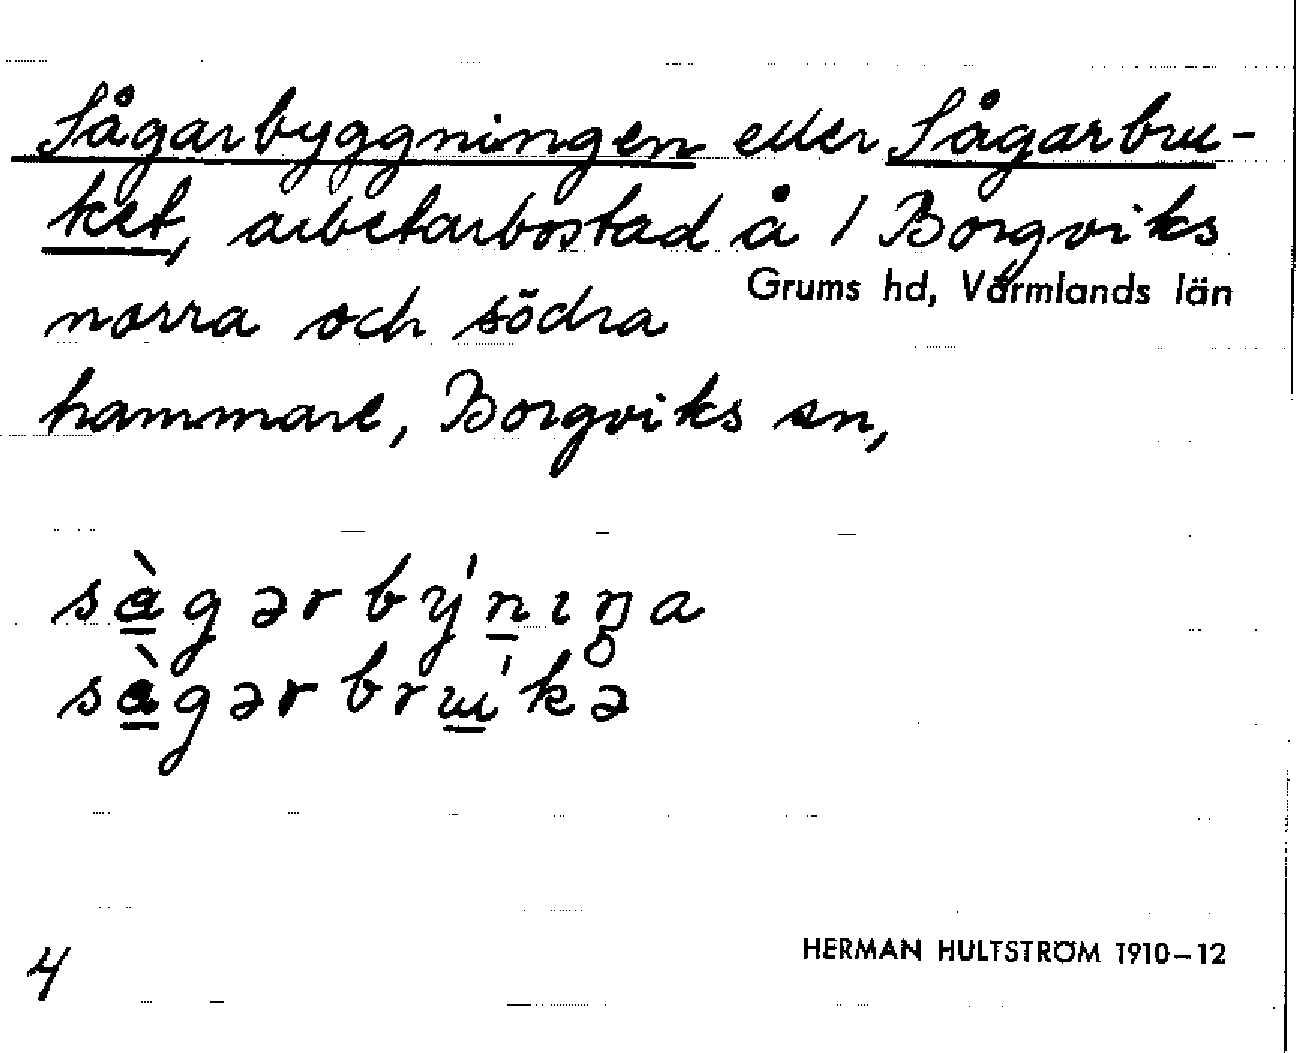 Sågarbyggningen eller Sågarbru-
ket, arbetarbostad å 1 Borgviks
Grums hd, Värmlands län
norra och södra
hammare, Borgviks sn,
sàgərbýnıŋa
sàgərbrúkə
4
HERMAN HULTSTRÖM 1910-12